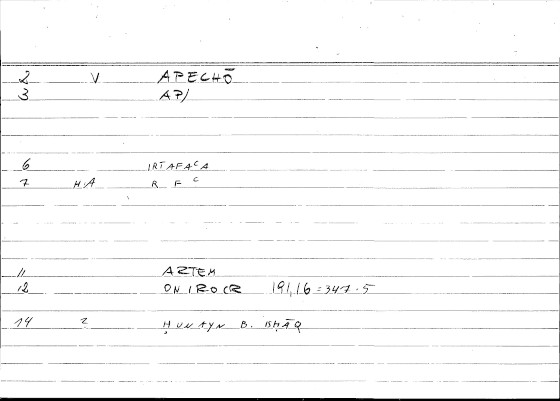 2 V APECHŌ
3 AP/
6 IRTAFACA
7 H.A R F C
11 ARTEM
12 ONIROCR 191,16 = 347.5
14 2 ḤUNAYN B. ISḤĀQ